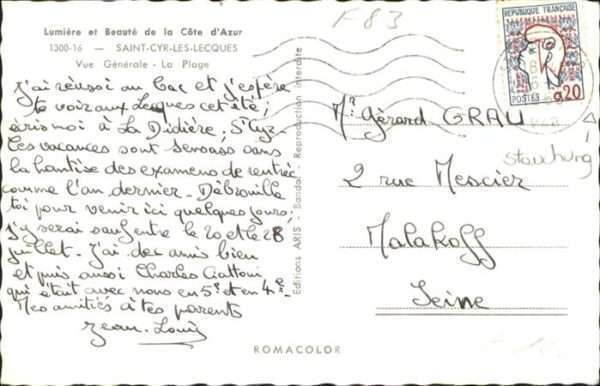 F83
Lumière et Beauté de la Côte d'Azur
1300-16 — SAINT-CYR-LES-LECQUES
Vue Générale - La Plage
J'ai réussi au bac et j'espère
te voir aux Lecques cet été ;
écris moi à La Didière, St Cyr.
Les vacances sont sans
la hantise des examens de rentrée
comme l'an dernier. Débrouille
toi pour venir ici quelques jours.
J'y serai sauf entre le 20 et le 28
juillet. J'ai des amis bien
et puis aussi Charles Ciattoni
qui était avec nous en 5e et en 4e.
Mes amitiés à tes parents
Jean-Louis
Editions ARIS - Bandol - Reproduction interdite
ROMACOLOR
REPUBLIQUE FRANÇAISE
POSTES 0,20
Mr Gérard GRAU
2 rue Mescier
Malakoff
Seine